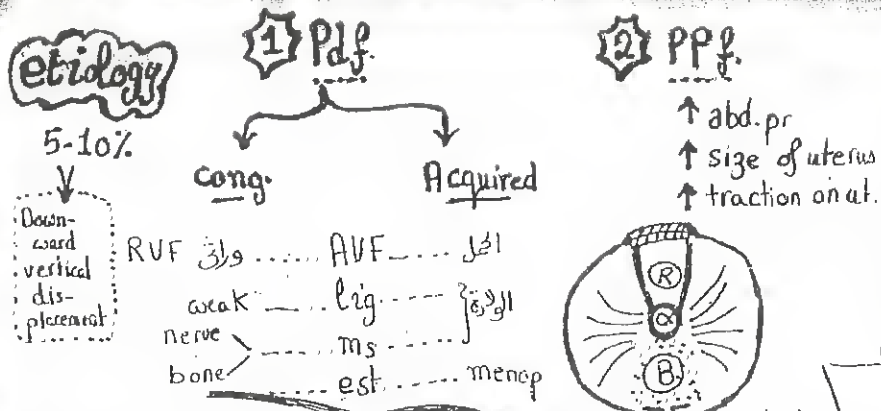 etiology
5-10%
Down-
ward
vertical
dis-
placement
1 Pdf.
cong. Acquired
RVF وراثى ...... AVF ..... الحمل
weak ..... lig ..... الولادة
nerve
bone ..... ms
est ..... menop
2 PPf.
↑ abd.pr
↑ size of uterus
↑ traction on ut.
R
α
B